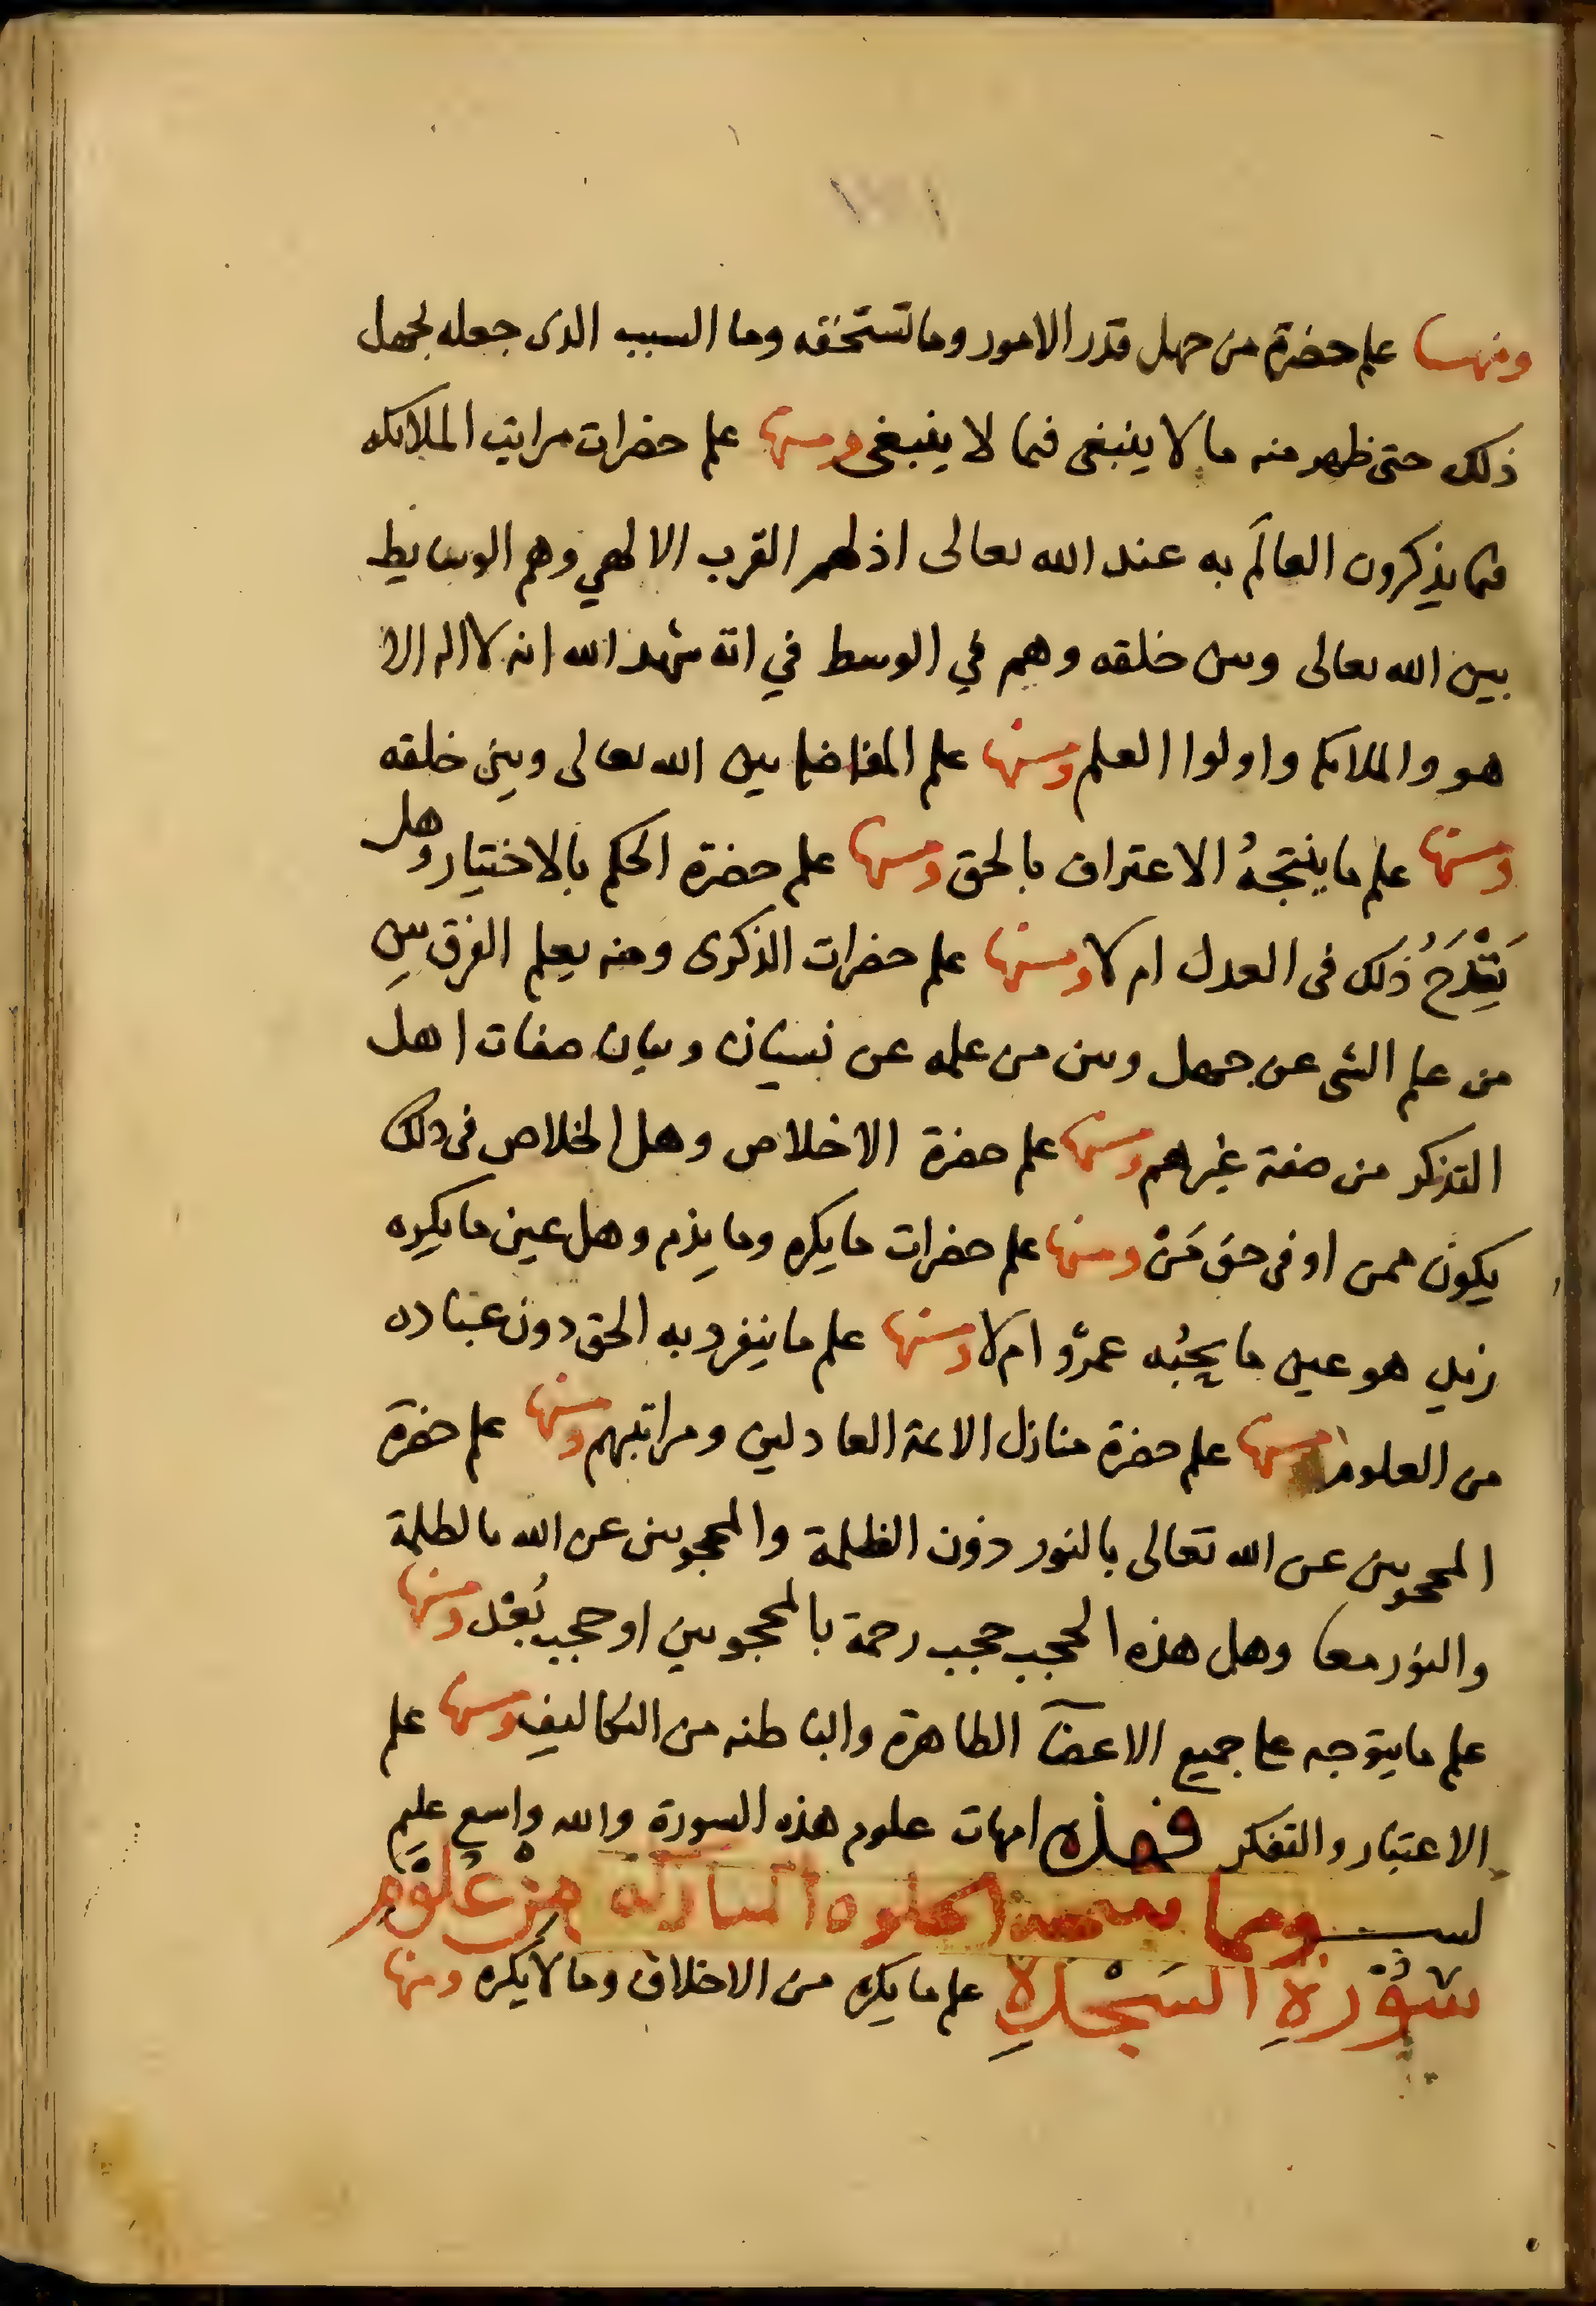 ومنها علم حضرة من جهل قدر الامور وما تستحقه وما السبب الذى جعله يجهل
ذلك حتى ظهر منه ما لا ينبغى فيما لا ينبغى ومنها علم حضرات مراتب الملايكه
فيما يذكرون العالَم به عند الله تعالى اذ لهم القرب الالهي وهم الوسايط
بين الله تعالى وبين خلقه وهم في الوسط في اية شهد الله انه لا اله الا
هو والملايكة واولوا العلم ومنها علم المفاضلة بين الله تعالى وبين خلقه
ومنها علم ما ينتجهُ الاعتراف بالحق ومنها علم حضرة الحكم بالاختيار وهل
يَقْدَحُ ذلك فى العدل ام لا ومنها علم حضرات الذكرى ومنه يعلم الفرق بين
من علم الشى عن جهل وبين من علمه عن نسيان وبيان صفات اهل
التذكر من صفة غيرهم ومنها علم حضرة الاخلاص وهل الخلاص فى ذلك
يكون ممن او فى حق مَنْ ومنها علم حضرات ما يكره وما يذم وهل عين ما يكره
زيد هو عين ما يحبُه عمرٌو ام لا ومنها علم ما ينفرد به الحق دون عباده
من العلوم ومنها علم حضرة منازل الايمة العادلين ومراتبهم ومنها علم حضرة
المحجوبين عن الله تعالى بالنور دون الظلمة والمحجوبين عن الله بالظلمة
والنور معا وهل هذه الحجب حجب رحمة بالمحجوبين او حجب بُعْد ومنها
علم ما يتوجه على جميع الاعضآ الظاهرة والباطنه من التكاليف ومنها علم
الاعتبار والتفكر فهذه امهات علوم هذه السورة والله واسع عليم
ومما من عُلوْمِ
سُوْرَةِ السَجْدَةِ علم ما يكره من الاخلاق وما لا يكره ومنها